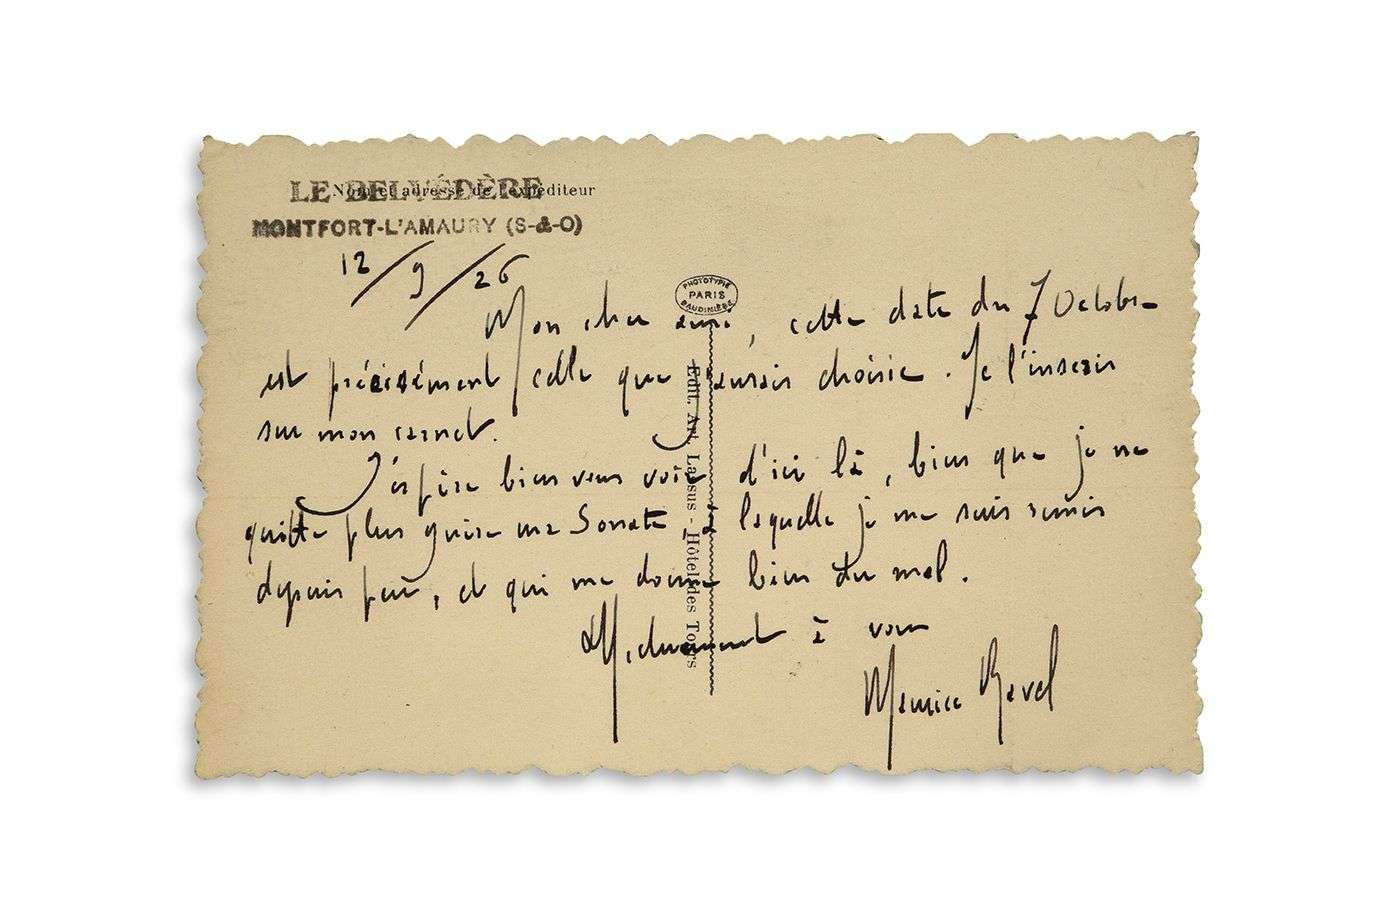 LE BELVÉDÈRE
Nom et adresse de l'expéditeur
MONTFORT-L'AMAURY (S-&-O)
12/9/26
PHOTOTYPIE
PARIS
BAUDINIÈRE
Mon cher ami, cette date du 7 Octobre
est précisément celle que j'aurais choisie. Je l'inscris
sur mon carnet.
J'espère bien vous voir d'ici là, bien que je ne
quitte plus guère ma Sonate, à laquelle je me suis remis
depuis peu, et qui me donne bien du mal.
à vous
Maurice Ravel
Edit. Art. Lassus - Hôtel des Tours